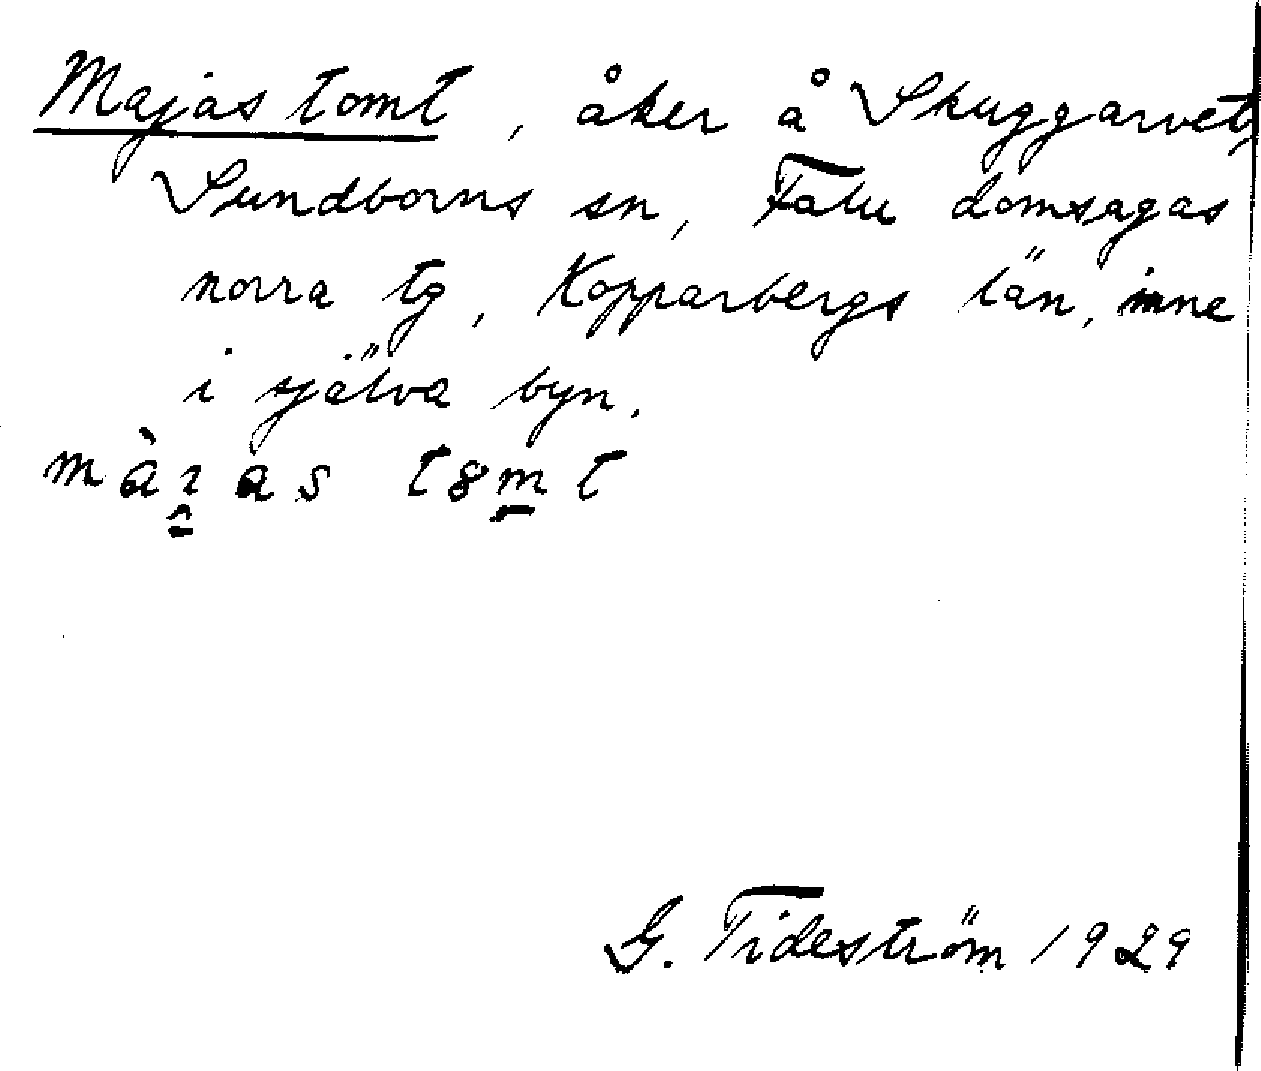 Majas tomt, åker å Skuggarvet,
Sundborns sn, Falu domsagas
norra tg, Kopparbergs län, inne
i själva byn.
tȣm̠t
G. Tideström 1929